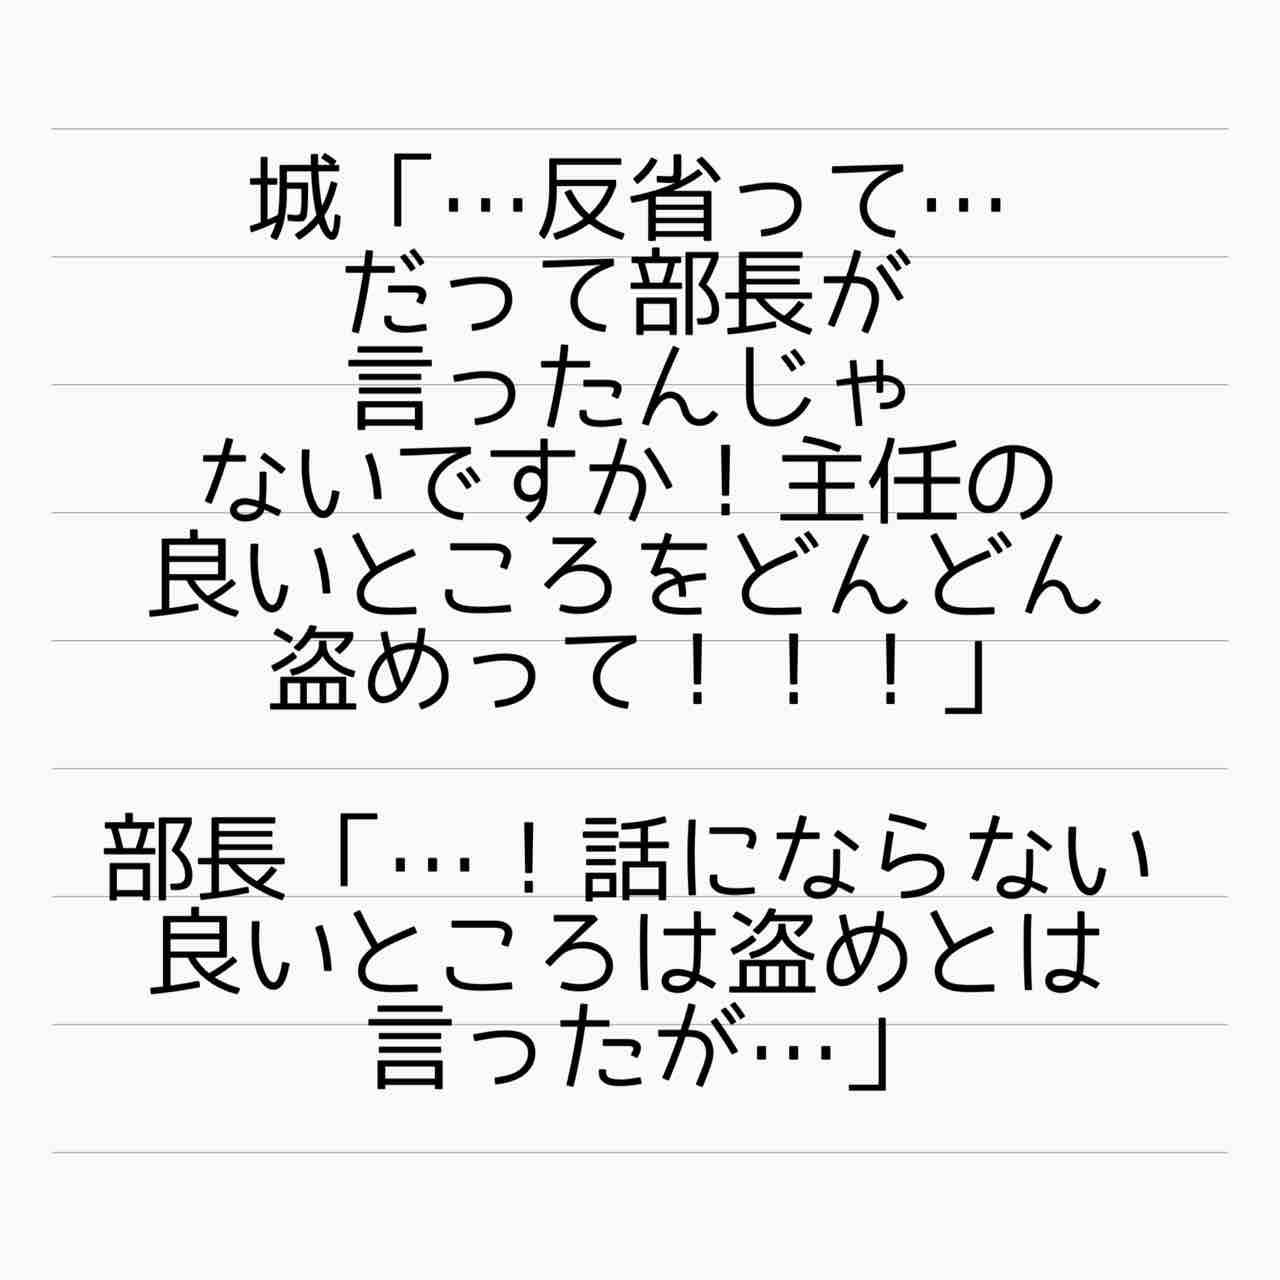 城「…反省って…
だって部長が
言ったんじゃ
ないですか！主任の
良いところをどんどん
盗めって！！！」
部長「…！話にならない
良いところは盗めとは
言ったが…」